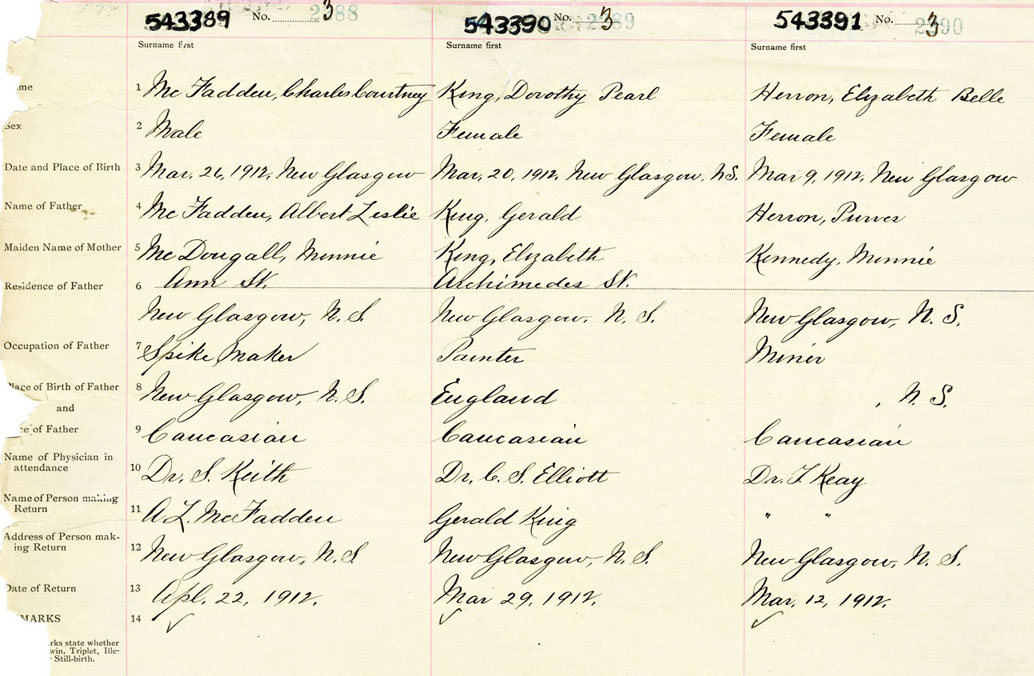 543389 No. 3 2388 543390 No. 3 2389 543391 No. 3 2390
Surname first Surname first Surname first
me 1 McFadden, Charles Courtney King, Dorothy Pearl Herron, Elizabeth Belle
Sex 2 Male Female Female
Date and Place of Birth 3 Mar. 26, 1912, New Glasgow Mar. 20, 1912, New Glasgow, N.S. Mar 9, 1912, New Glasgow
Name of Father 4 McFadden, Albert Leslie King, Gerald Herron, Purves
Maiden Name of Mother 5 McDougall, Minnie King, Elizabeth Kennedy, Minnie
Residence of Father 6 Ann St. Archimedes St.
New Glasgow, N.S. New Glasgow, N.S. New Glasgow, N.S.
Occupation of Father 7 Spike Maker Painter Miner
Place of Birth of Father 8 New Glasgow, N.S. England , N.S.
and
ce of Father 9 Caucasian Caucasian Caucasian
Name of Physician in
attendance 10 Dr. S. Keith Dr. C. S. Elliott Dr. J Keay
Name of Person making
Return 11 A L. McFadden Gerald King " "
Address of Person mak-
ing Return 12 New Glasgow, N.S. New Glasgow, N.S. New Glasgow, N.S.
Date of Return 13 Apl. 22, 1912. Mar 29, 1912. Mar. 12, 1912.
MARKS 14
rks state whether
win, Triplet, Ille-
Still-birth.